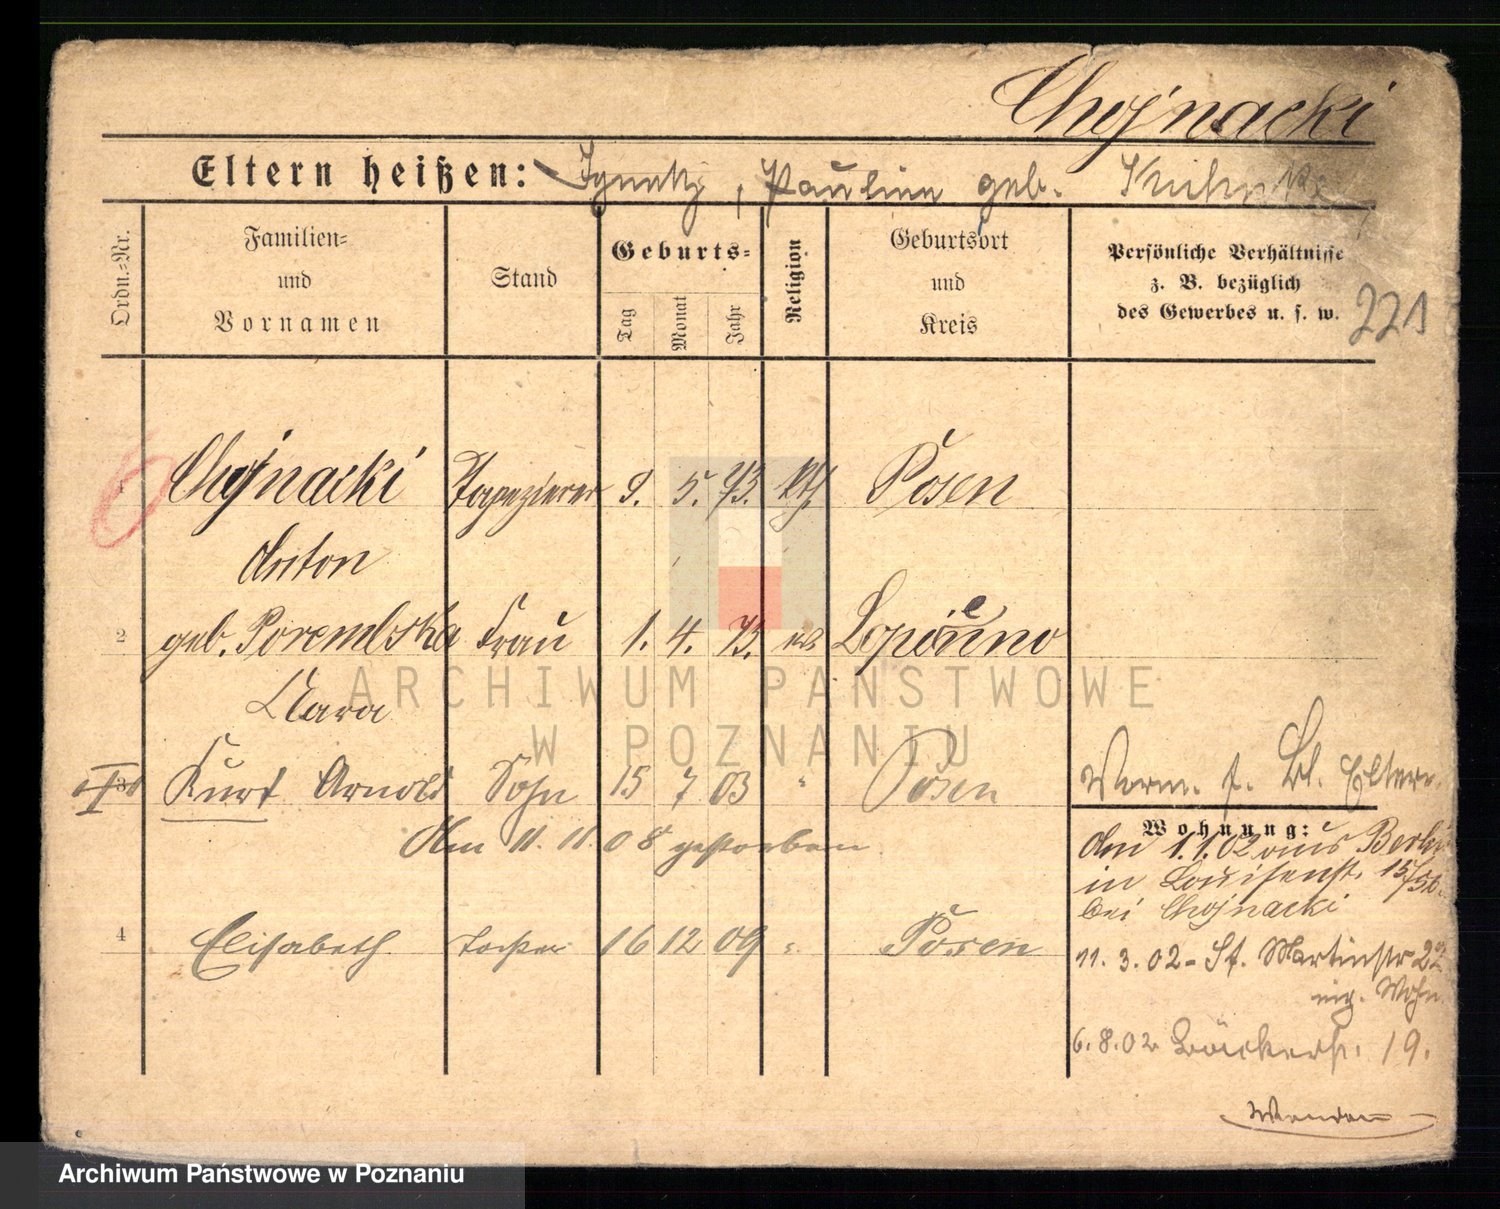 Chojnacki
Eltern heißen: Ignatz, Pauline geb.
Ordn.-Nr.
Familien-
und
Vornamen
Stand
Geburts-
Tag
Monat
Jahr
Religion
Geburtsort
und
Kreis
Persönliche Verhältnisse
z. B. bezüglich
des Gewerbes u. s. w.
221
1 Chojnacki Tapezierer 9. 5. 73. kth Posen
Anton
2 geb. Porembska Frau 1. 4. 73. Lopienno
Clara
3 Kurt Arnold Sohn 15 7 03 " Posen
Am 11. 11. 08 gestorben
4 Elisabeth Tochter 16 12 09 " Posen
Vorm. s. Bl. Eltern
Wohnung:
Am 1.1.02 aus Berlin
in Louisenstr. 15/
bei Chojnacki
11. 3. 02 - St. Martinstr 22
eig. Wohn.
6. 8. 02 Bäckerstr. 19.
Wenden
ARCHIWUM PAŃSTWOWE
W POZNANIU
Archiwum Państwowe w Poznaniu